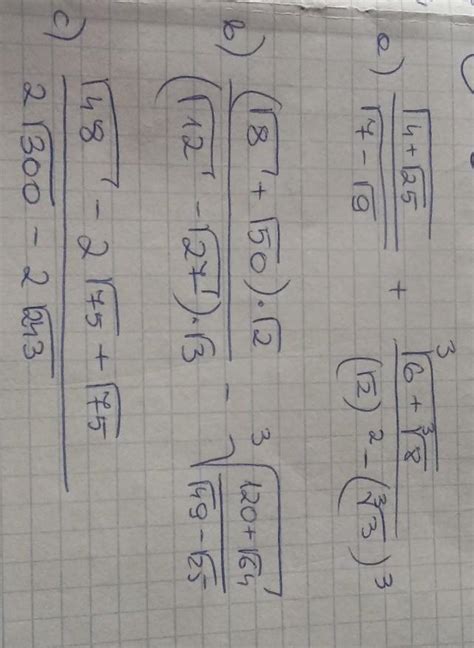 a) \frac{\sqrt{4+\sqrt{25}}}{\sqrt{7-\sqrt{9}}} + \frac{\sqrt[3]{6+\sqrt[3]{8}}}{(\sqrt{2})^2-(\sqrt[3]{3})^3}
b) \frac{(\sqrt{8}+\sqrt{50})\cdot\sqrt{2}}{(\sqrt{12}-\sqrt{27})\cdot\sqrt{3}} - \sqrt[3]{\frac{120+\sqrt{64}}{\sqrt{49}-\sqrt{25}}}
c) \frac{\sqrt{48}-2\sqrt{75}+\sqrt{75}}{2\sqrt{300}-2\sqrt{243}}